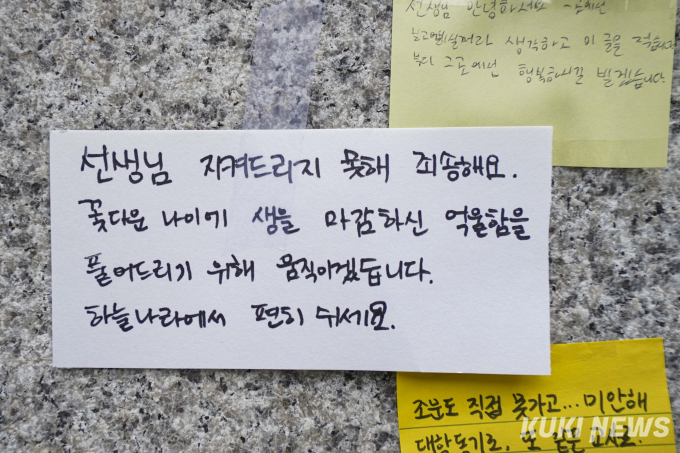 선생님 안녕하세요
보고 생각하고 이 글을 적습니다
부디 그곳에선 행복하시길 빌게습니다.
선생님 지켜드리지 못해 죄송해요.
꽃다운 나이에 생을 마감하신 억울함을
풀어드리기 위해 움직이겠습니다.
하늘나라에서 편히 쉬세요.
조문도 직접 못가고... 미안해
대학동기로, 또 같은 교사로.
KUKI NEWS